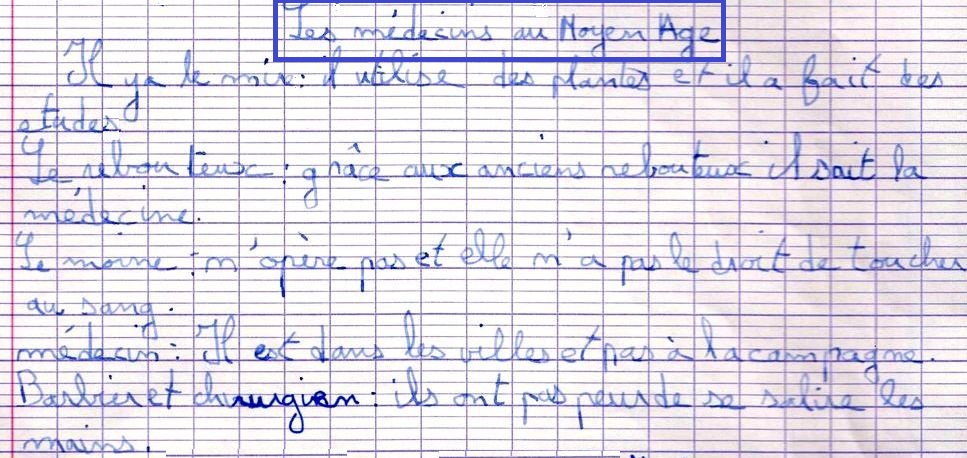 Les médecins au Moyen Age
Il ya le mire : il utilise des plantes et il a fait des
etudes.
Le rebouteux : grâce aux anciens rebouteux il sait la
médecine.
Le moine : n'opère pas et elle n'a pas le droit de toucher
au sang.
médecin : Il est dans les villes et pas à la campagne.
Barbier et chirurgien : ils ont pas peur de se salire les
mains.